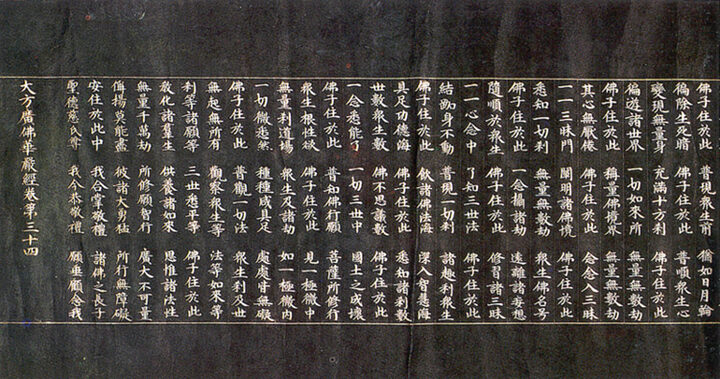 佛子住於此 普現衆生前 猶如日月輪
徧除生死暗 佛子住於此 普順衆生心
變現無量身 充滿十方刹 佛子住於此
徧遊諸世界 一切如來所 無量無數劫
佛子住於此 稱量佛境界 無量無數劫
其心無厭倦 佛子住於此 念念入三昧
一一三昧門 闡明諸佛境 佛子住於此
悉知一切刹 無量無數劫 衆生佛名号
佛子住於此 一念攝諸劫 遠離諸妄想
隨順於衆生 佛子住於此 修習諸三昧
一一心念中 了知三世法 佛子住於此
結跏身不動 普現一切刹 諸趣刹衆生
佛子住於此 飲諸佛法海 深入智慧海
具足功德海 佛子住於此 悉知諸刹數
世數衆生數 佛不思議數 佛子住於此
一念悉能了 一切三世中 國土之成壞
佛子住於此 普知佛行願 菩薩所修行
衆生根性欲 佛子住於此 見一極微中
無量刹道場 衆生及諸劫 如一極微內
一切微悉然 種種咸具足 處處皆無礙
佛子住於此 普觀一切法 衆生刹及世
無起無所有 觀察衆生等 法等如來等
刹等諸願等 三世悉平等 佛子住於此
教化諸羣生 供養諸如來 思惟諸法性
無量千萬劫 所修願智行 廣大不可量
侮揚莫能盡 彼諸大勇猛 所行無障礙
安住於此中 我合掌敬禮 諸佛之長子
聖德慈氏尊 我今恭敬禮 願垂顧念我
大方廣佛華嚴經卷第三十四